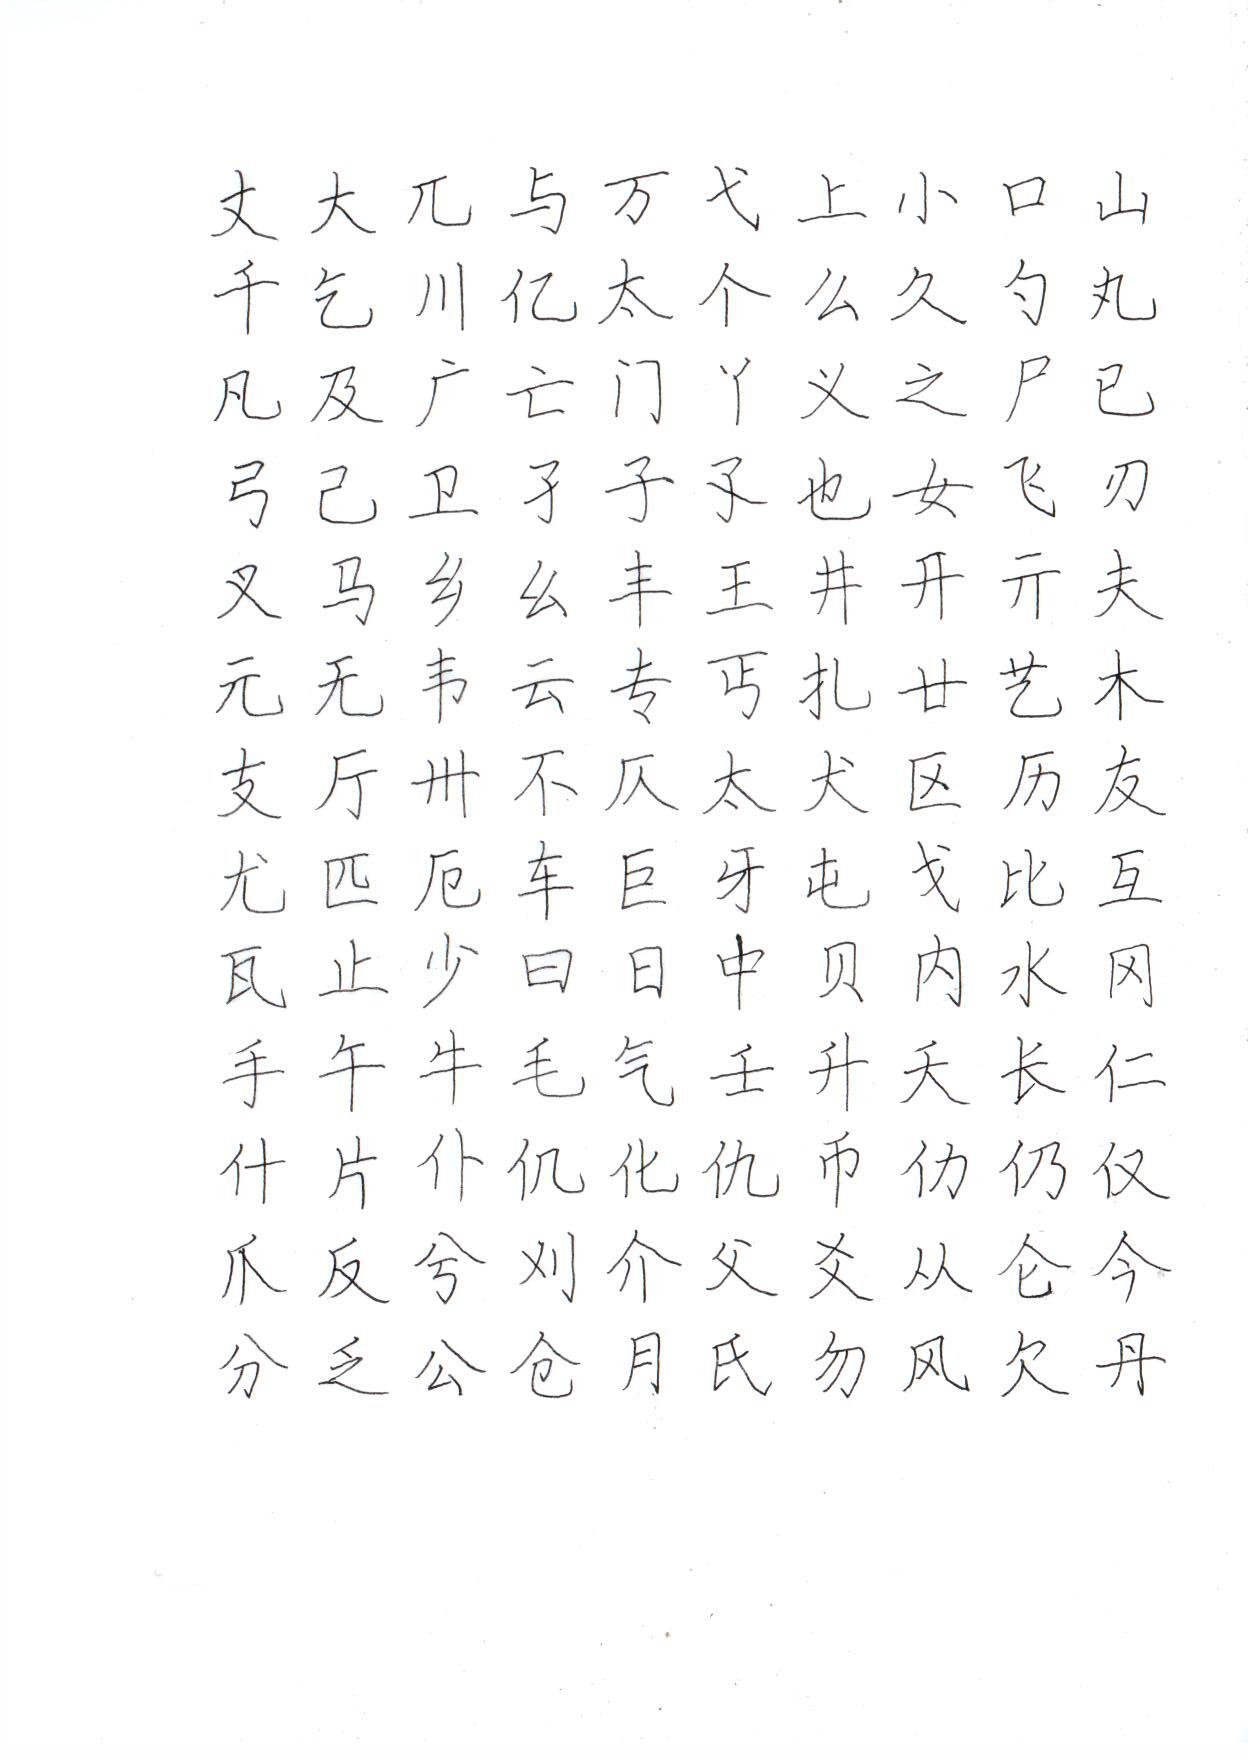 丈大兀与万弋上小口山
千乞川亿太个么久勺丸
凡及广亡门丫义之尸已
弓己卫孑子孓也女飞刃
叉马乡幺丰王井开亓夫
元无韦云专丐扎廿艺木
支厅卅不仄太犬区历友
尤匹厄车巨牙屯戈比互
瓦止少曰日中贝内水冈
手午牛毛气壬升夭长仁
什片仆仉化仇币仂仍仅
爪反兮刈介父爻从仑今
分乏公仓月氏勿风欠丹